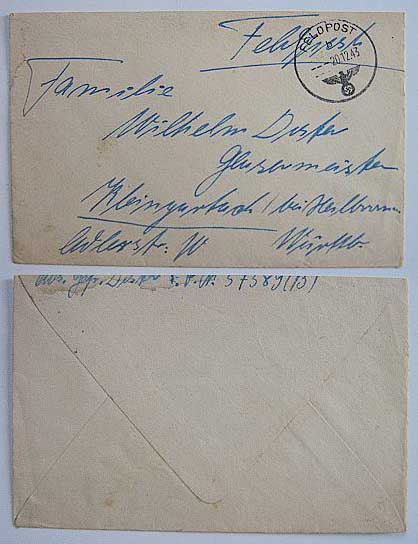 Feldpost
FELDPOST
20.12.43
Familie
Wilhelm Dister
Glasermeister
Kleingartach / bei Heilbronn
Adlerstr. 10 Württb
Abs. Gefr. Dister F.P.N. 57589(B)